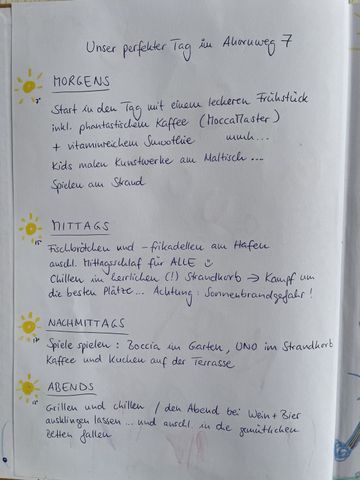 Unser perfekter Tag im Ahornweg 7
MORGENS
Start in den Tag mit einem leckeren Frühstück
inkl. phantastischem Kaffee (MoccaMaster)
+ vitaminreichem Smoothie mmh...
Kids malen Kunstwerke am Maltisch ...
Spielen am Strand
MITTAGS
Fischbrötchen und -frikadellen am Hafen
anschl. Mittagsschlaf für ALLE ☺
Chillen im herrlichen (!) Strandkorb → Kampf um
die besten Plätze... Achtung: Sonnenbrandgefahr!
NACHMITTAGS
Spiele spielen: Boccia im Garten, UNO im Strandkorb
Kaffee und Kuchen auf der Terrasse
ABENDS
Grillen und chillen / den Abend bei Wein + Bier
ausklingen lassen ... und anschl. in die gemütlichen
Betten fallen